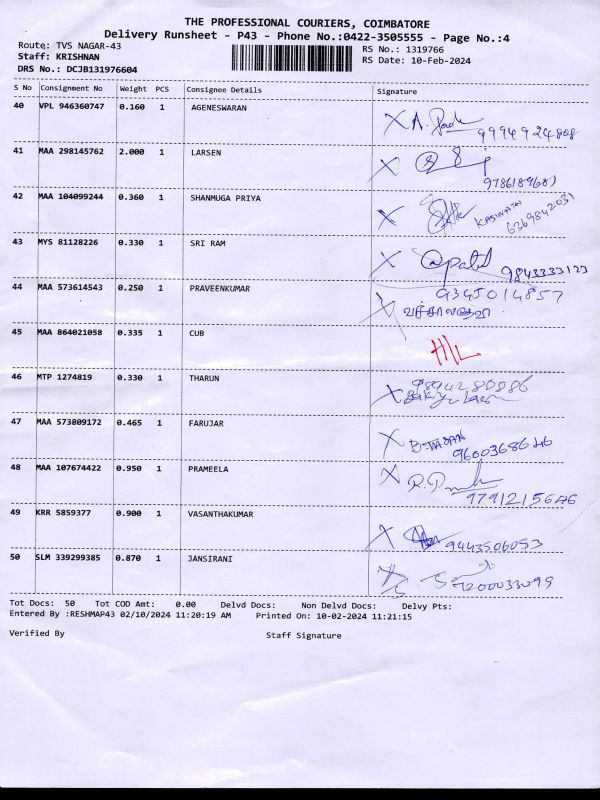 THE PROFESSIONAL COURIERS, COIMBATORE
Delivery Runsheet - P43 - Phone No.:0422-3505555 - Page No.:4
Route: TVS NAGAR-43 RS No.: 1319766
Staff: KRISHNAN RS Date: 10-Feb-2024
DRS No.: DCJB131976604
S No Consignment No Weight PCS Consignee Details Signature
40 VPL 946360747 0.160 1 AGENESWARAN
9994924808
41 MAA 298145762 2.000 1 LARSEN
42 MAA 104099244 0.360 1 SHANMUGA PRIYA
43 MYS 81128226 0.330 1 SRI RAM
9843333123
44 MAA 573614543 0.250 1 PRAVEENKUMAR 9345014857
வத்சாலதேவி
45 MAA 864021058 0.335 1 CUB
46 MTP 1274819 0.330 1 THARUN 9894280886
47 MAA 573809172 0.465 1 FARUJAR
9600368646
48 MAA 107674422 0.950 1 PRAMEELA
9791215646
49 KRR 5859377 0.900 1 VASANTHAKUMAR
9443506053
50 SLM 339299385 0.870 1 JANSIRANI
9200033099
Tot Docs: 50 Tot COD Amt: 0.00 Delvd Docs: Non Delvd Docs: Delvy Pts:
Entered By :RESHMAP43 02/10/2024 11:20:19 AM Printed On: 10-02-2024 11:21:15
Verified By Staff Signature